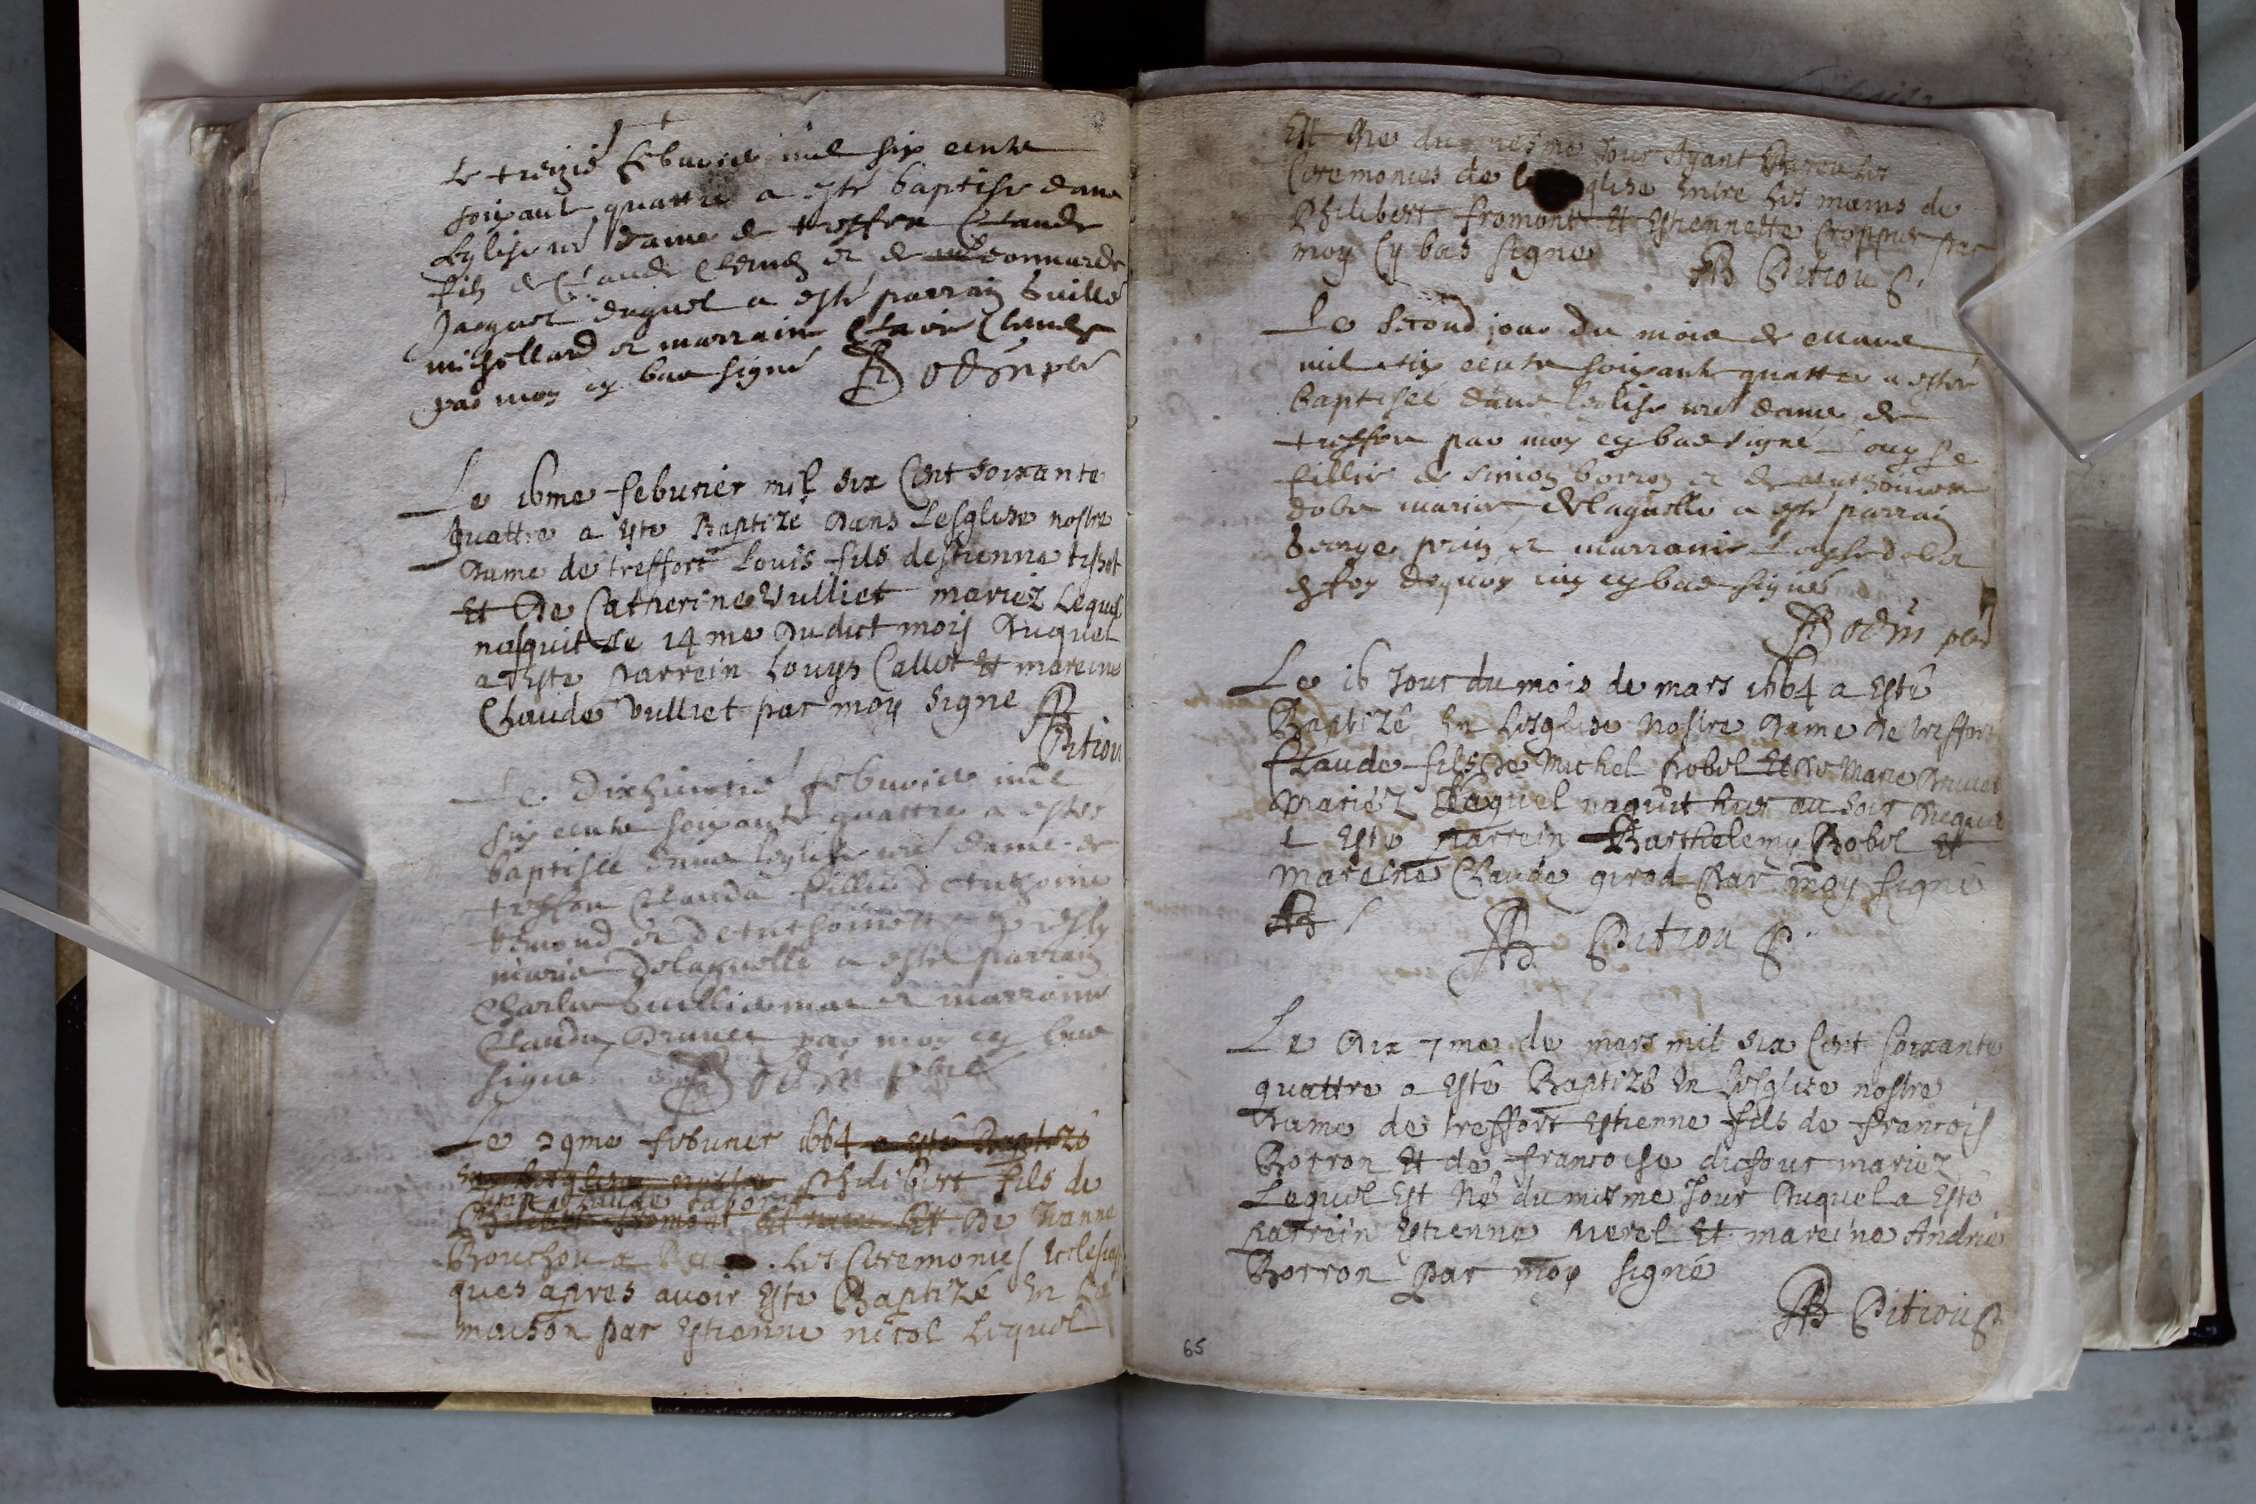 Le treizie febvrier mil six cents
soixante quattre a esté baptisé dans
leglise nre dame de treffor Claude
filz de Claude et de leonnarde
Jacquet duquel a esté parrain Guille
michellard et marraine Claude
par moy cy bas signé Bodin pbr
Le 16me feburier mil six Cent soixante
quattre a este Baptizé dans Lesglize nostre
Dame de treffort Louis fils destienne tissot
Et De Catherine Vulliet mariez Lequel
nasquit Le 14me Dudict mois Duquel
a este parrein Louys Callet Et mareine
Claude Vulliet par moy signe
Pitiou
Le dixhuitie febvrier mil
six cents soixante quattre a estés
baptisée dans leglise nre dame de
treffor Clauda fillie d'Anthoine
et d'Anthoinette
mariés de laquelle a esté parrain
Charles Guilliermae et marraine
Clauda Brunet par moy cy bas
signé Bodin pbre
Le 29me feburier 1664 a Esté Baptizé
En Lesglize nostre Philibert fils de
Claude
Philibert fromont Et De Jeanne
Bouchou a Les Ceremonies Ecclesiasti
ques apres avoir Este Baptizé En La
maison par Estienne nicol Lequel
Est Né du mesme Jour Ayant Receu Les
Ceremonies de glize Entre Les mains de
Philibert fromont Et Estiennette par
moy Cy bas signe Pitiou P.
Le second jour du mois de mars
mil six cents soixante quattre a estée
Baptisée dans leglise nre dame de
treffor par moy cy bas signé Louyse
fillie de Simon borron et de Anthoinette
dola mariés, de laquelle a esté parrain
George prin et marraine Louyse dola
En foy dequoy iay cy bas signé
Bodin pbr
Le 16 Jour du mois de mars 1664 a Esté
Baptizé En Lesglize Nostre Dame De treffort
Claude fils De Michel Bobel Et De Marie Brunet
Mariéz Lequel naquit hier au soir Duquel
a Este Parrein Barthelemy Bobel Et
Mareine Claude girod Par moy signé
Pitiou P.
Le Dix 7me de mars mil six Cent soixante
quattre a Esté Baptizé En Lesglize nostre
Dame de treffort Estienne fils de francois
Borron Et de francoise dichour mariez
Lequel Est Né du mesme Jour Duquel a Esté
parrein Estienne Morel Et mareine Andrée
Borron Par moy signé
Pitiou P.
65